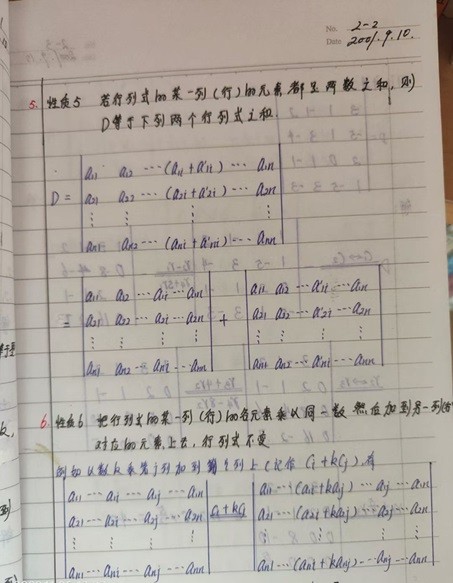 No. 2-2
Date 2001.9.10.
5. 性质5 若行列式的某一列(行)的元素都是两数之和,则
D等于下列两个行列式之和.
D = | a11 a12 ⋯ (a1i + a'1i) ⋯ a1n |
| a21 a22 ⋯ (a2i + a'2i) ⋯ a2n |
| ⋮ ⋮ ⋮ ⋮ |
| an1 an2 ⋯ (ani + a'ni) ⋯ ann |
= | a11 a12 ⋯ a1i ⋯ a1n | + | a11 a12 ⋯ a'1i ⋯ a1n |
| a21 a22 ⋯ a2i ⋯ a2n | | a21 a22 ⋯ a'2i ⋯ a2n |
| ⋮ ⋮ ⋮ ⋮ | | ⋮ ⋮ ⋮ ⋮ |
| an1 an2 ⋯ ani ⋯ ann | | an1 an2 ⋯ a'ni ⋯ ann |
6. 性质6 把行列式的某一列(行)的各元素乘以同一数 然后加到另一列(行)
对应的元素上去,行列式不变
例如以数k乘第j列加到第i列上(记作 Ci + kCj),有
| a11 ⋯ a1i ⋯ a1j ⋯ a1n | Ci + kCj | a11 ⋯ (a1i + ka1j) ⋯ a1j ⋯ a1n |
| a21 ⋯ a2i ⋯ a2j ⋯ a2n | | a21 ⋯ (a2i + ka2j) ⋯ a2j ⋯ a2n |
| ⋮ ⋮ ⋮ ⋮ | | ⋮ ⋮ ⋮ ⋮ |
| an1 ⋯ ani ⋯ anj ⋯ ann | | an1 ⋯ (ani + kanj) ⋯ anj ⋯ ann |